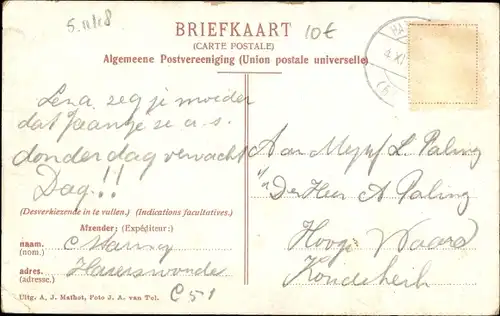 5.11.18
BRIEFKAART
(CARTE POSTALE)
10€
Algemeene Postvereeniging (Union postale universelle)
Lena, zeg je moeder
dat Jaantje ze a.s.
donderdag verwacht
Dag!!
Aan Mejuf L Paling
De Heer A Paling
Hooge Waard
(Desverkiezende in te vullen.) (Indications facultatives.)
Afzender: (Expéditeur:)
naam. C
(nom.)
adres. Hazerswoude
(adresse.)
C51
Uitg. A. J. Mathot, Foto J. A. van Tol.